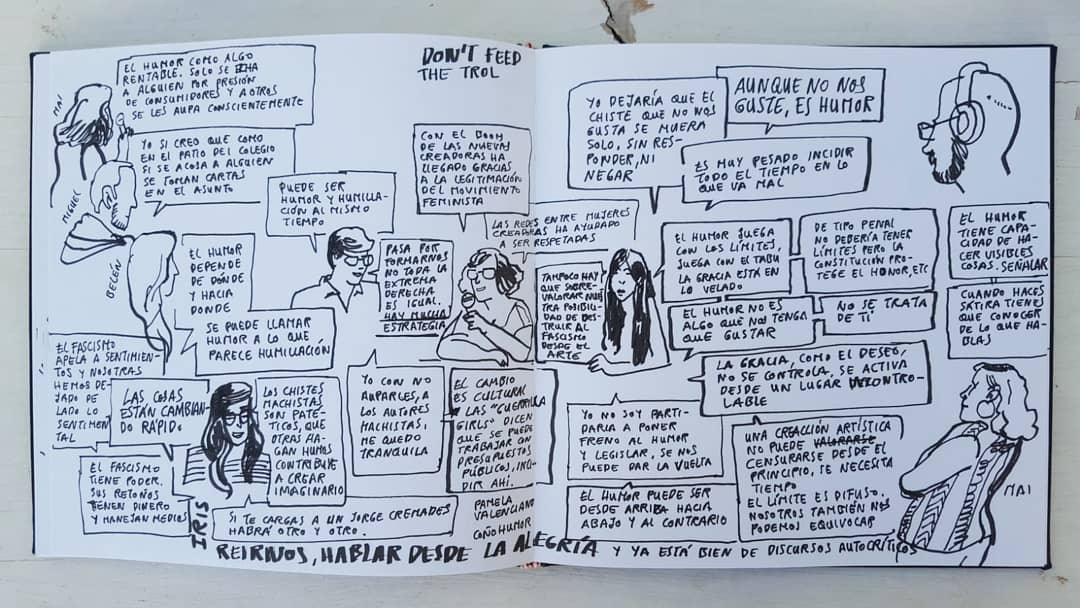 DON'T FEED
THE TROL
MAI
EL HUMOR COMO ALGO
RENTABLE. SOLO SE ECHA
A ALGUIEN POR PRESIÓN
DE CONSUMIDORES Y A OTROS
SE LES AUPA CONSCIENTEMENTE
YO SI CREO QUE COMO
EN EL PATIO DEL COLEGIO
SI SE ACOSA A ALGUIEN
SE TOMAN CARTAS
EN EL ASUNTO
MIGUEL
BEGÉN
EL HUMOR
DEPENDE
DE DÓNDE
Y HACIA
DONDE
SE PUEDE LLAMAR
HUMOR A LO QUE
PARECE HUMILLACIÓN
PUEDE SER
HUMOR Y HUMILLA-
CIÓN AL MISMO
TIEMPO
CON EL BOOM
DE LAS NUEVAS
CREADORAS HA
LLEGADO GRACIAS
A LA LEGITIMACIÓN
DEL MOVIMIENTO
FEMINISTA
LAS REDES ENTRE MUJERES
CREADORAS HA AYUDADO
A SER RESPETADAS
PASA POR
FORMARNOS
NO TODA LA
EXTREMA
DERECHA
ES IGUAL.
HAY MUCHA
ESTRATEGIA
TAMPOCO HAY
QUE SOBRE-
VALORAR NUES
TRA POSIBILI-
DAD DE DES-
TRUIR AL
FASCISMO
DESDE EL
ARTE
EL FASCISMO
APELA A SENTIMIEN-
TOS Y NOSOTRAS
HEMOS DE-
JADO DE
LADO LO
SENTIMEN
TAL
LAS COSAS
ESTÁN CAMBIAN-
DO RÁPIDO
EL FASCISMO
TIENE PODER.
SUS RETOÑOS
TIENEN DINERO
Y MANEJAN MEDIOS
IRIS
LOS CHISTES
MACHISTAS
SON PATÉ-
TICOS, QUE
OTRAS HA-
GAN HUMOS
CONTRIBUYE
A CREAR
IMAGINARIO
SI TE CARGAS A UN JORGE CREMADES
HABRÁ OTRO Y OTRO.
YO CON NO
AUPARLES, A
LOS AUTORES
MACHISTAS,
ME QUEDO
TRANQUILA
EL CAMBIO
ES CULTURAL
LAS "GUERRILLA
GIRLS" DICEN
QUE SE PUEDE
TRABAJAR CON
PRESUPUESTOS
PÚBLICOS, INCI-
DIR AHÍ.
PAMELA
VALENCIANO
COÑOHUMOR
YO DEJARÍA QUE EL
CHISTE QUE NO NOS
GUSTA SE MUERA
SOLO, SIN RES-
PONDER, NI
NEGAR
AUNQUE NO NOS
GUSTE, ES HUMOR
ES MUY PESADO INCIDIR
TODO EL TIEMPO EN LO
QUE VA MAL
EL HUMOR JUEGA
CON LOS LÍMITES,
JUEGA CON EL TABU
LA GRACIA ESTÁ EN
LO VELADO
DE TIPO PENAL
NO DEBERÍA TENER
LÍMITES PERO LA
CONSTITUCIÓN PRO-
TEGE EL HONOR, ETC
EL HUMOR
TIENE CAPA-
CIDAD DE HA-
CER VISIBLES
COSAS. SEÑALAR
EL HUMOR NO ES
ALGO QUE NOS TENGA
QUE GUSTAR
NO SE TRATA
DE TI
CUANDO HACES
SÁTIRA TIENES
QUE CONOCER
DE LO QUE HA-
BLAS
LA GRACIA, COMO EL DESEO,
NO SE CONTROLA, SE ACTIVA
DESDE UN LUGAR INCONTRO-
LABLE
YO NO SOY PARTI-
DARIA A PONER
FRENO AL HUMOR
Y LEGISLAR, SE NOS
PUEDE DAR LA VUELTA
EL HUMOR PUEDE SER
DESDE ARRIBA HACIA
ABAJO Y AL CONTRARIO
UNA CREACCIÓN ARTÍSTICA
NO PUEDE VALORARSE
CENSURARSE DESDE EL
PRINCIPIO, SE NECESITA
TIEMPO
EL LÍMITE ES DIFUSO,
NOSOTROS TAMBIÉN NOS
PODEMOS EQUIVOCAR
MAI
REIRNOS, HABLAR DESDE LA ALEGRÍA Y YA ESTÁ BIEN DE DISCURSOS AUTOCRÍTICOS